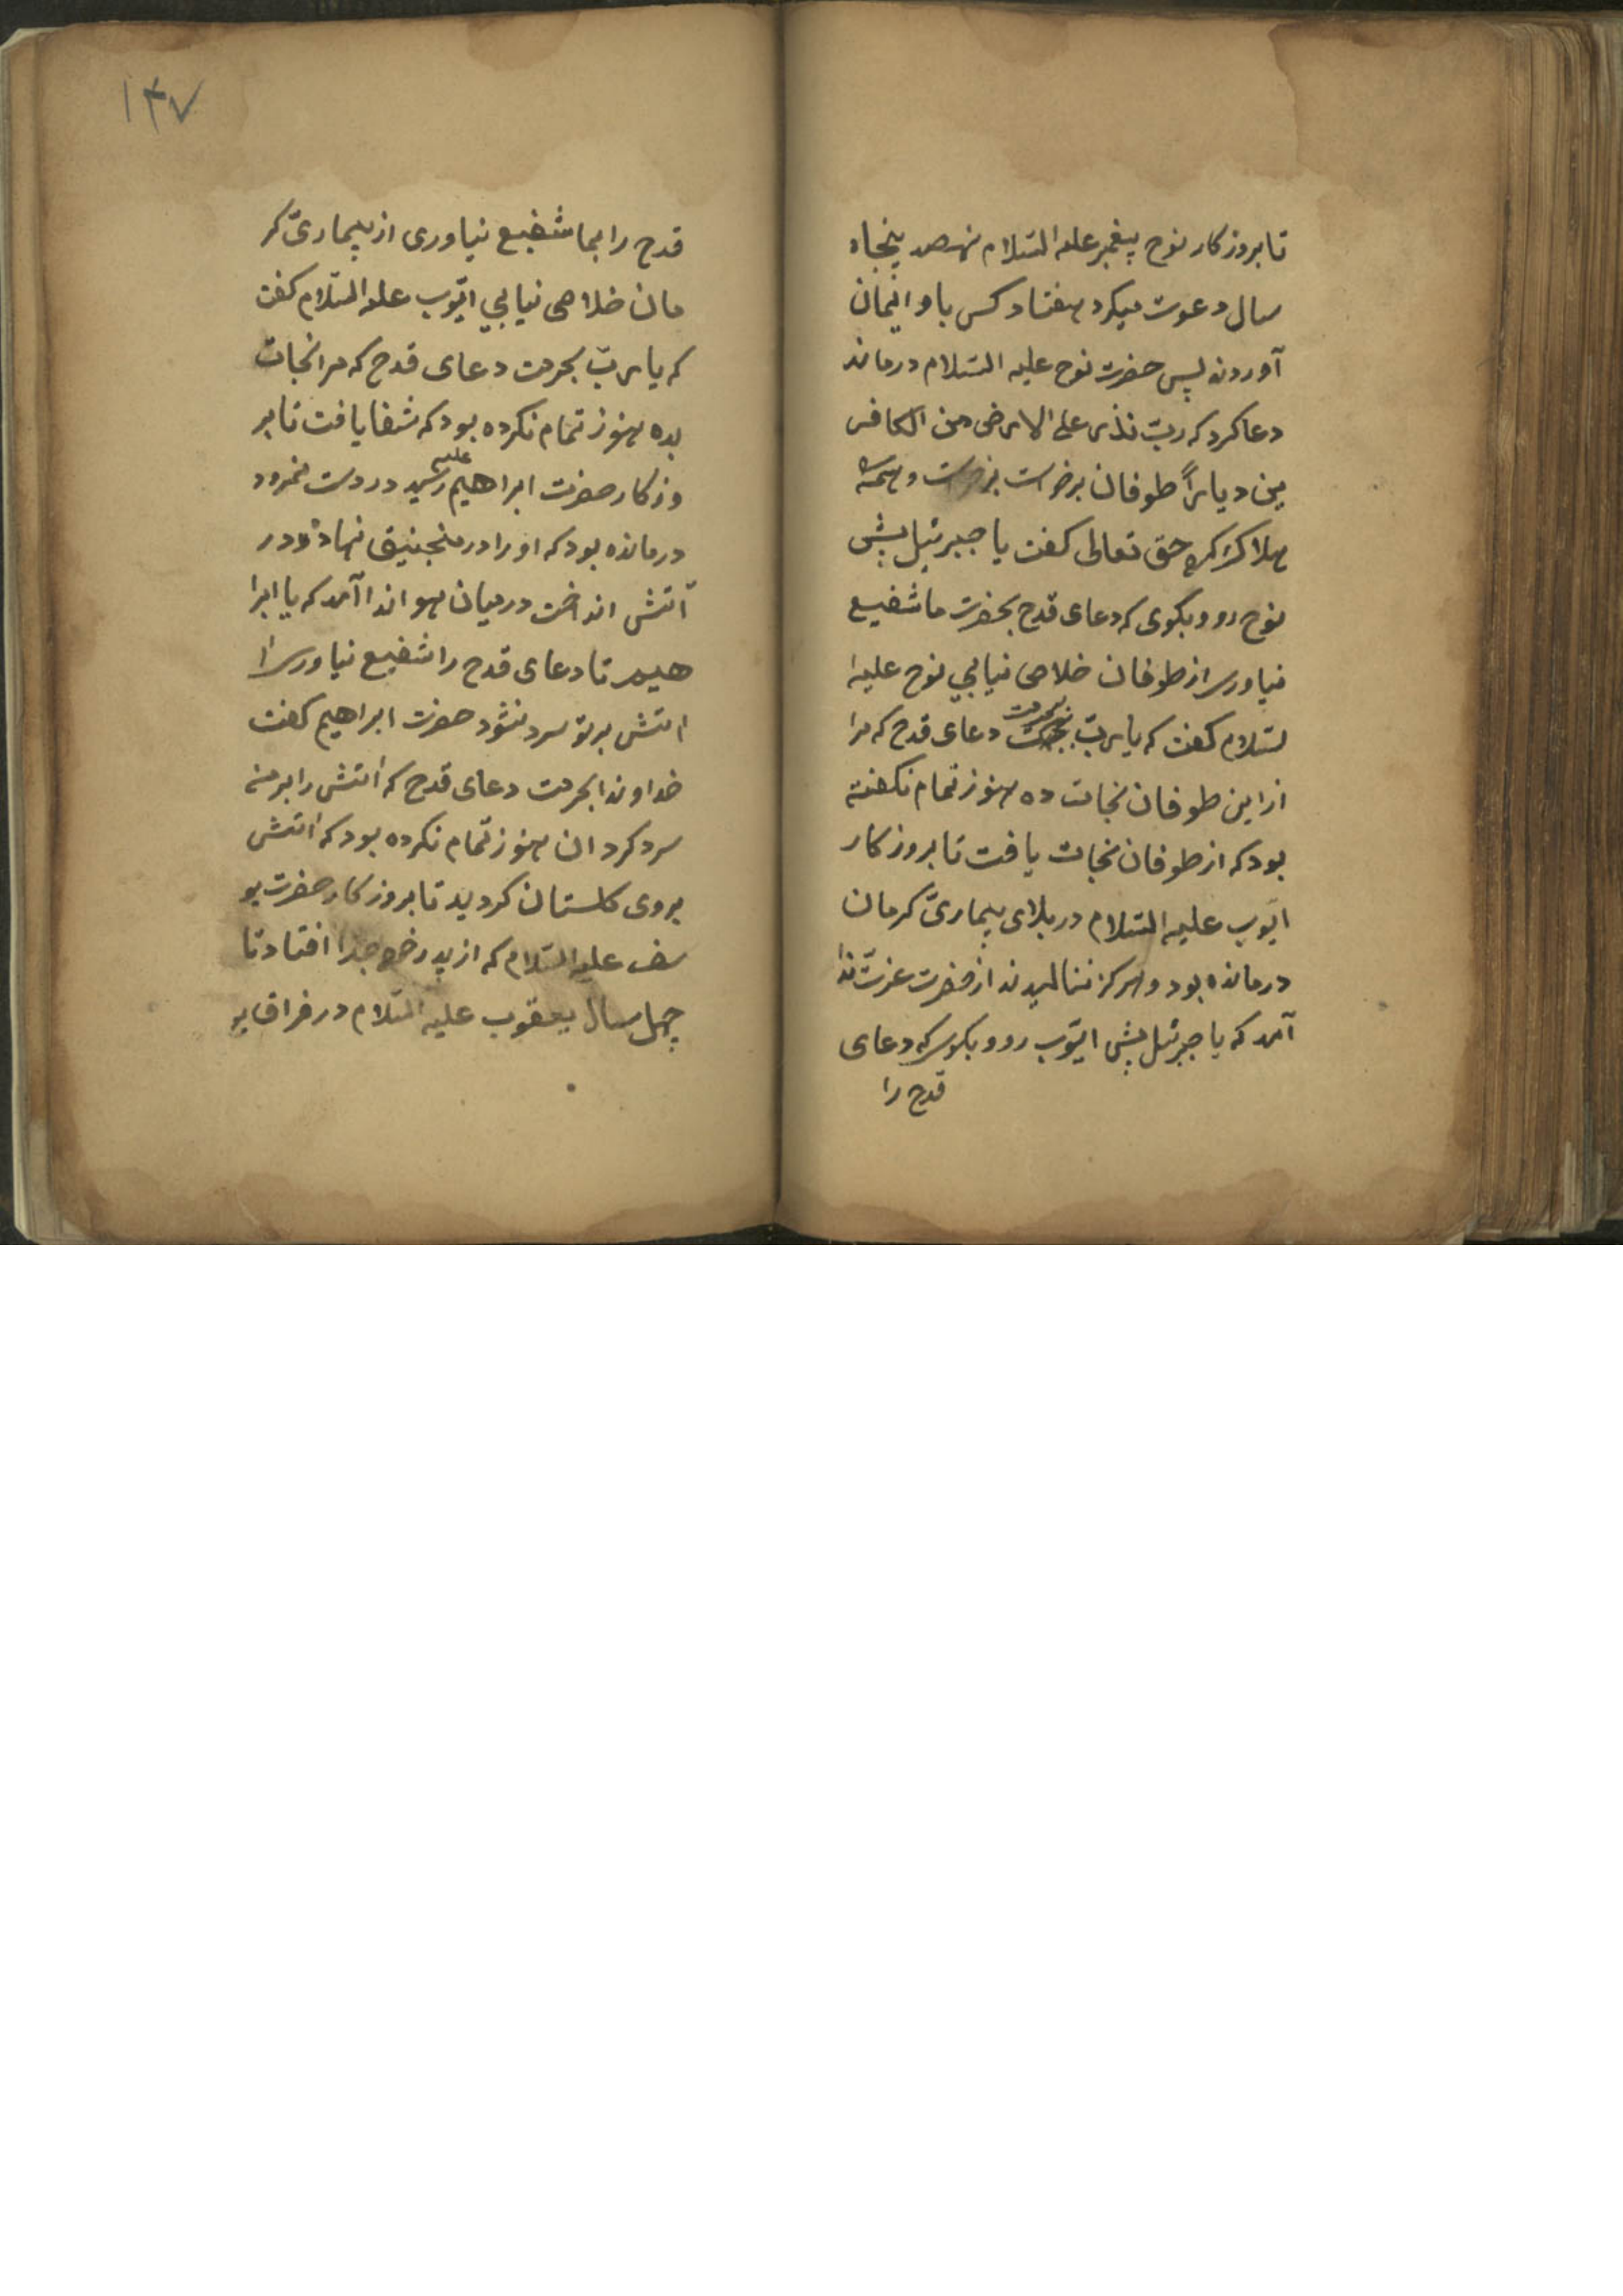 تا بروزکار نوح پیغمبر علیه السّلام نهصد پنجاه
سال دعوت میکرد هفتاد کس باو ایمان
آوردند پس حضرت نوح علیه السّلام درماند
دعا کرد که ربّ تذر علی الارض من الکافر
ین دیاراً طوفان برخواست و همه
هلاک کرد حق تعالی کفت یا جبرئیل پیش
نوح رو و بکوی که دعای قدح بحضرت ما شفیع
نیاوری از طوفان خلاصی نیابی نوح علیه ا
لسّلام کفت که یا ربّ بحرمت دعای قدح که مرا
از این طوفان نجات ده هنوز تمام نکفته
بود که از طوفان نجات یافت تا بروزکار
ایّوب علیه السّلام در بلای بیماریّ کرمان
درمانده بود و هرکز ننالیدند از حضرت عزّت ندا
آمد که یا جبرئیل پیش ایّوب رو و بکوی که دعای
قدح را
۱۴۷
قدح را بما شفیع نیاوری از بیماریّ کر
مان خلاصی نیابی ایّوب علیه السّلام کفت
که یا ربّ بحرمت دعای قدح که مرا نجات
بده هنوز تمام نکرده بود که شفا یافت تا بر
وزکار حضرت ابراهیم علیه رسید در دست نمرود
درمانده بود که او را در منجنیق نهاد و در
آتش انداخت در میان هوا ندا آمد که یا ابرا
هیم تا دعای قدح را شفیع نیاوری ا
اتش بر تو سرد نشود حضرت ابراهیم کفت
خداوندا بحرمت دعای قدح که اتش را بر من
سرد کردان هنوز تمام نکرده بود که اتش
بروی کلستان کردید تا بروزکار حضرت یو
سف علیه السّلام که از پدر خود جدا افتاد تا
چهل سال یعقوب علیه السّلام در فراق یو